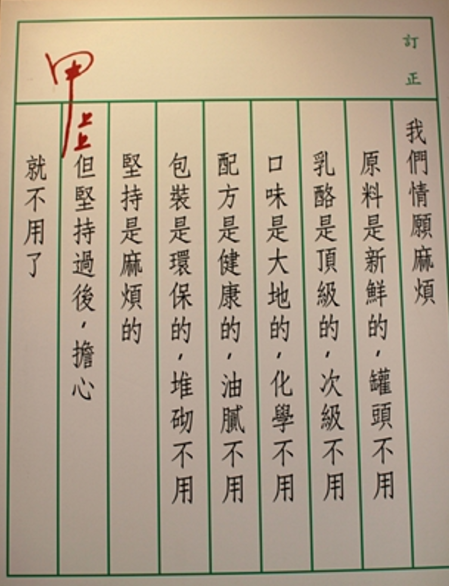 訂正
我們情願麻煩
原料是新鮮的，罐頭不用
乳酪是頂級的，次級不用
口味是大地的，化學不用
配方是健康的，油膩不用
包裝是環保的，堆砌不用
堅持是麻煩的
但堅持過後，擔心
就不用了
甲上上